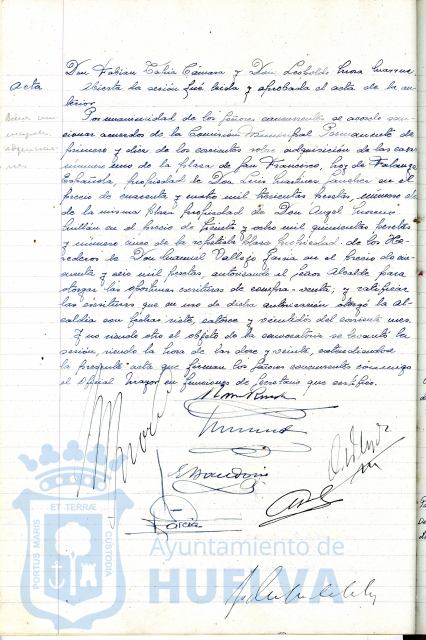 Don Fabian Tafia Cámara y Don Leopoldo
Acta
Abierta la sesión fué leida y aprobada el acta de la an-
terior.
Por unanimidad de los señores concurrentes se acordó san-
cionar acuerdos de la Comisión Municipal Permanente de
primero y diez de los corrientes sobre adquisición de las casas
número uno de la plaza de San Francisco, hoy de Falange
Española, propiedad de Don Luis Martinez Sanchez en el
precio de cuarenta y cuatro mil trescientas pesetas, número
de la misma plaza propiedad de Don Angel Moreno
en el precio de treinta y ocho mil quinientas pesetas
y número cinco de la repetida plaza propiedad de los He-
rederos de Don Manuel Vallejo Garcia en el precio de cin-
cuenta y seis mil pesetas, autorizando al Señor Alcalde para
otorgar las oportunas escrituras de compra-venta, y ratificar
las escrituras que en uso de dicha autorización otorgó la Al-
caldia con fechas siete, catorce y veintidós del corriente mes.
Y no siendo otro el objeto de la convocatoria se levantó la
sesión, siendo la hora de las doce y veinte, extendiendose
la presente acta que firman los señores concurrentes conmigo
el Oficial Mayor en funciones de Secretario que certifico.
PORTUS MARIS ET TERRÆ CUSTODIA
Ayuntamiento de
HUELVA